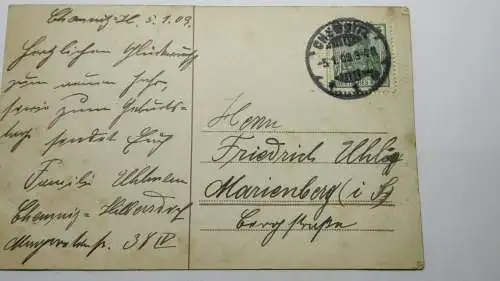 Chemnitz-H. 5.1.09.
Herzlichen Glückwunsch
zum neuen Jahr,
sowie zum Geburts-
tage sendet Euch
Familie Uhlmann
Chemnitz-Hilbersdorf
38 IV
CHEMNITZ
-5.1.09
Herrn
Friedrich Uhlig
Marienberg (i. S.)
Bergstraße